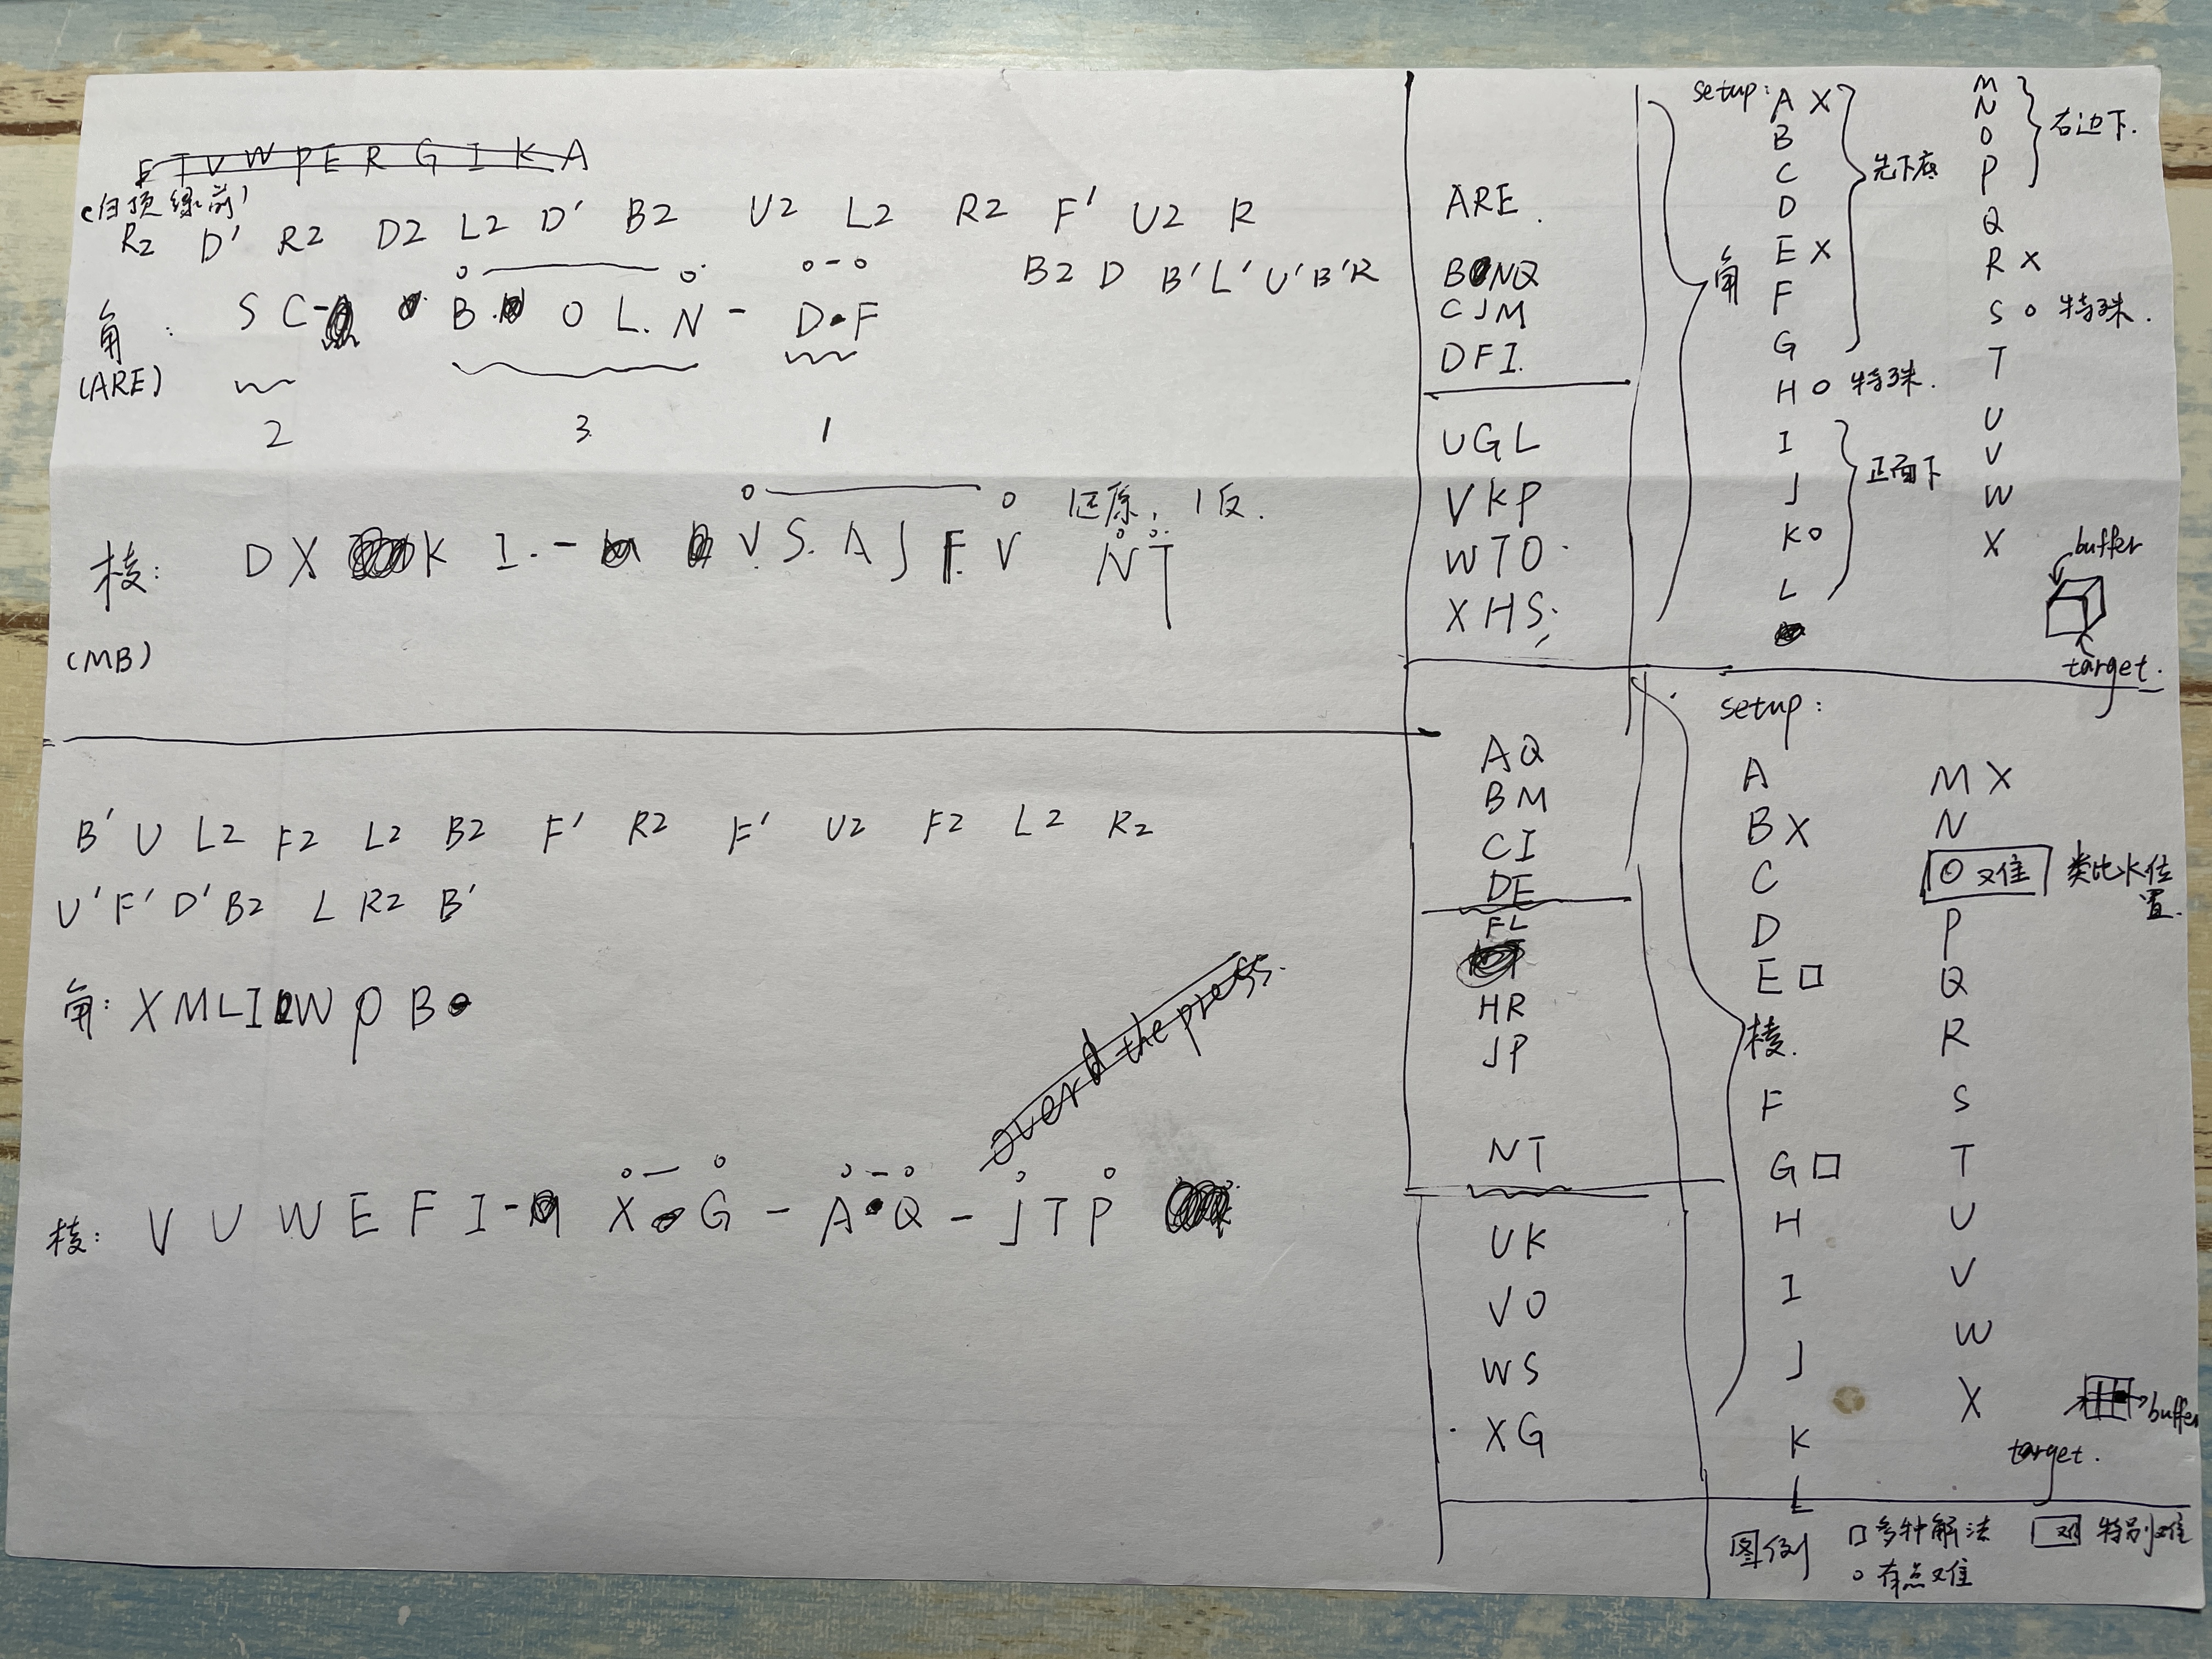 E T V W P E R G I K A
(白顶绿前)
R2 D' R2 D2 L2 D' B2 U2 L2 R2 F' U2 R
B2 D B' L' U' B' R
角: S C - B. O L. N - D F
(ARE)
2 3 1
还原, 1反.
棱: D X K I. - V S. A J F. V N T
(MB)
B' U L2 F2 L2 B2 F' R2 F' U2 F2 L2 R2
U' F' D' B2 L R2 B'
角: X M L I W P B
overd the press.
棱: V U W E F I - X G - A Q - J T P
ARE.
BNQ
CJM
DFI.
UGL
VKP
WTO.
XHS.
AQ
BM
CI
DE
FL
HR
JP
NT
UK
VO
WS
XG
角
setup: A X
B
C
D
E X
F
G
先下底
H O 特殊.
I
J
K O
L
正面下
M
N
O
P
右边下.
Q
R X
S O 特殊.
T
U
V
W
X
buffer
target.
setup:
棱.
A
B X
C
D
E □
F
G □
H
I
J
K
L
M X
N
O 难 类比水位置.
P
Q
R
S
T
U
V
W
X
buffer
target.
图例 □ 多种解法 难 特别难
o 有点难